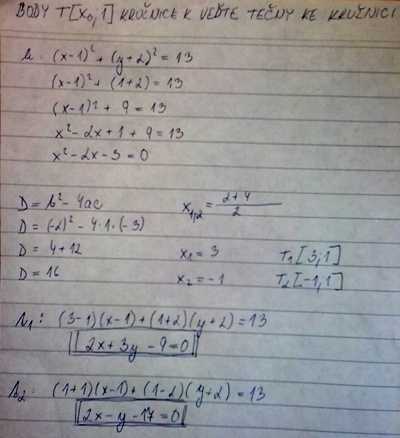 BODY T[x₀,1] KRUŽNICE K VEĎTE TEČNY KE KRUŽNICI
k: (x-1)² + (y+2)² = 13
(x-1)² + (1+2) = 13
(x-1)² + 9 = 13
x² - 2x + 1 + 9 = 13
x² - 2x - 3 = 0
D = b² - 4ac
D = (-2)² - 4·1·(-3)
D = 4 + 12
D = 16
x₁,₂ = 2+4 / 2
x₁ = 3 T₁[3,1]
x₂ = -1 T₂[-1,1]
t₁: (3-1)(x-1) + (1+2)(y+2) = 13
2x + 3y - 9 = 0
t₂: (1+1)(x-1) + (1-2)(y+2) = 13
2x - y - 17 = 0